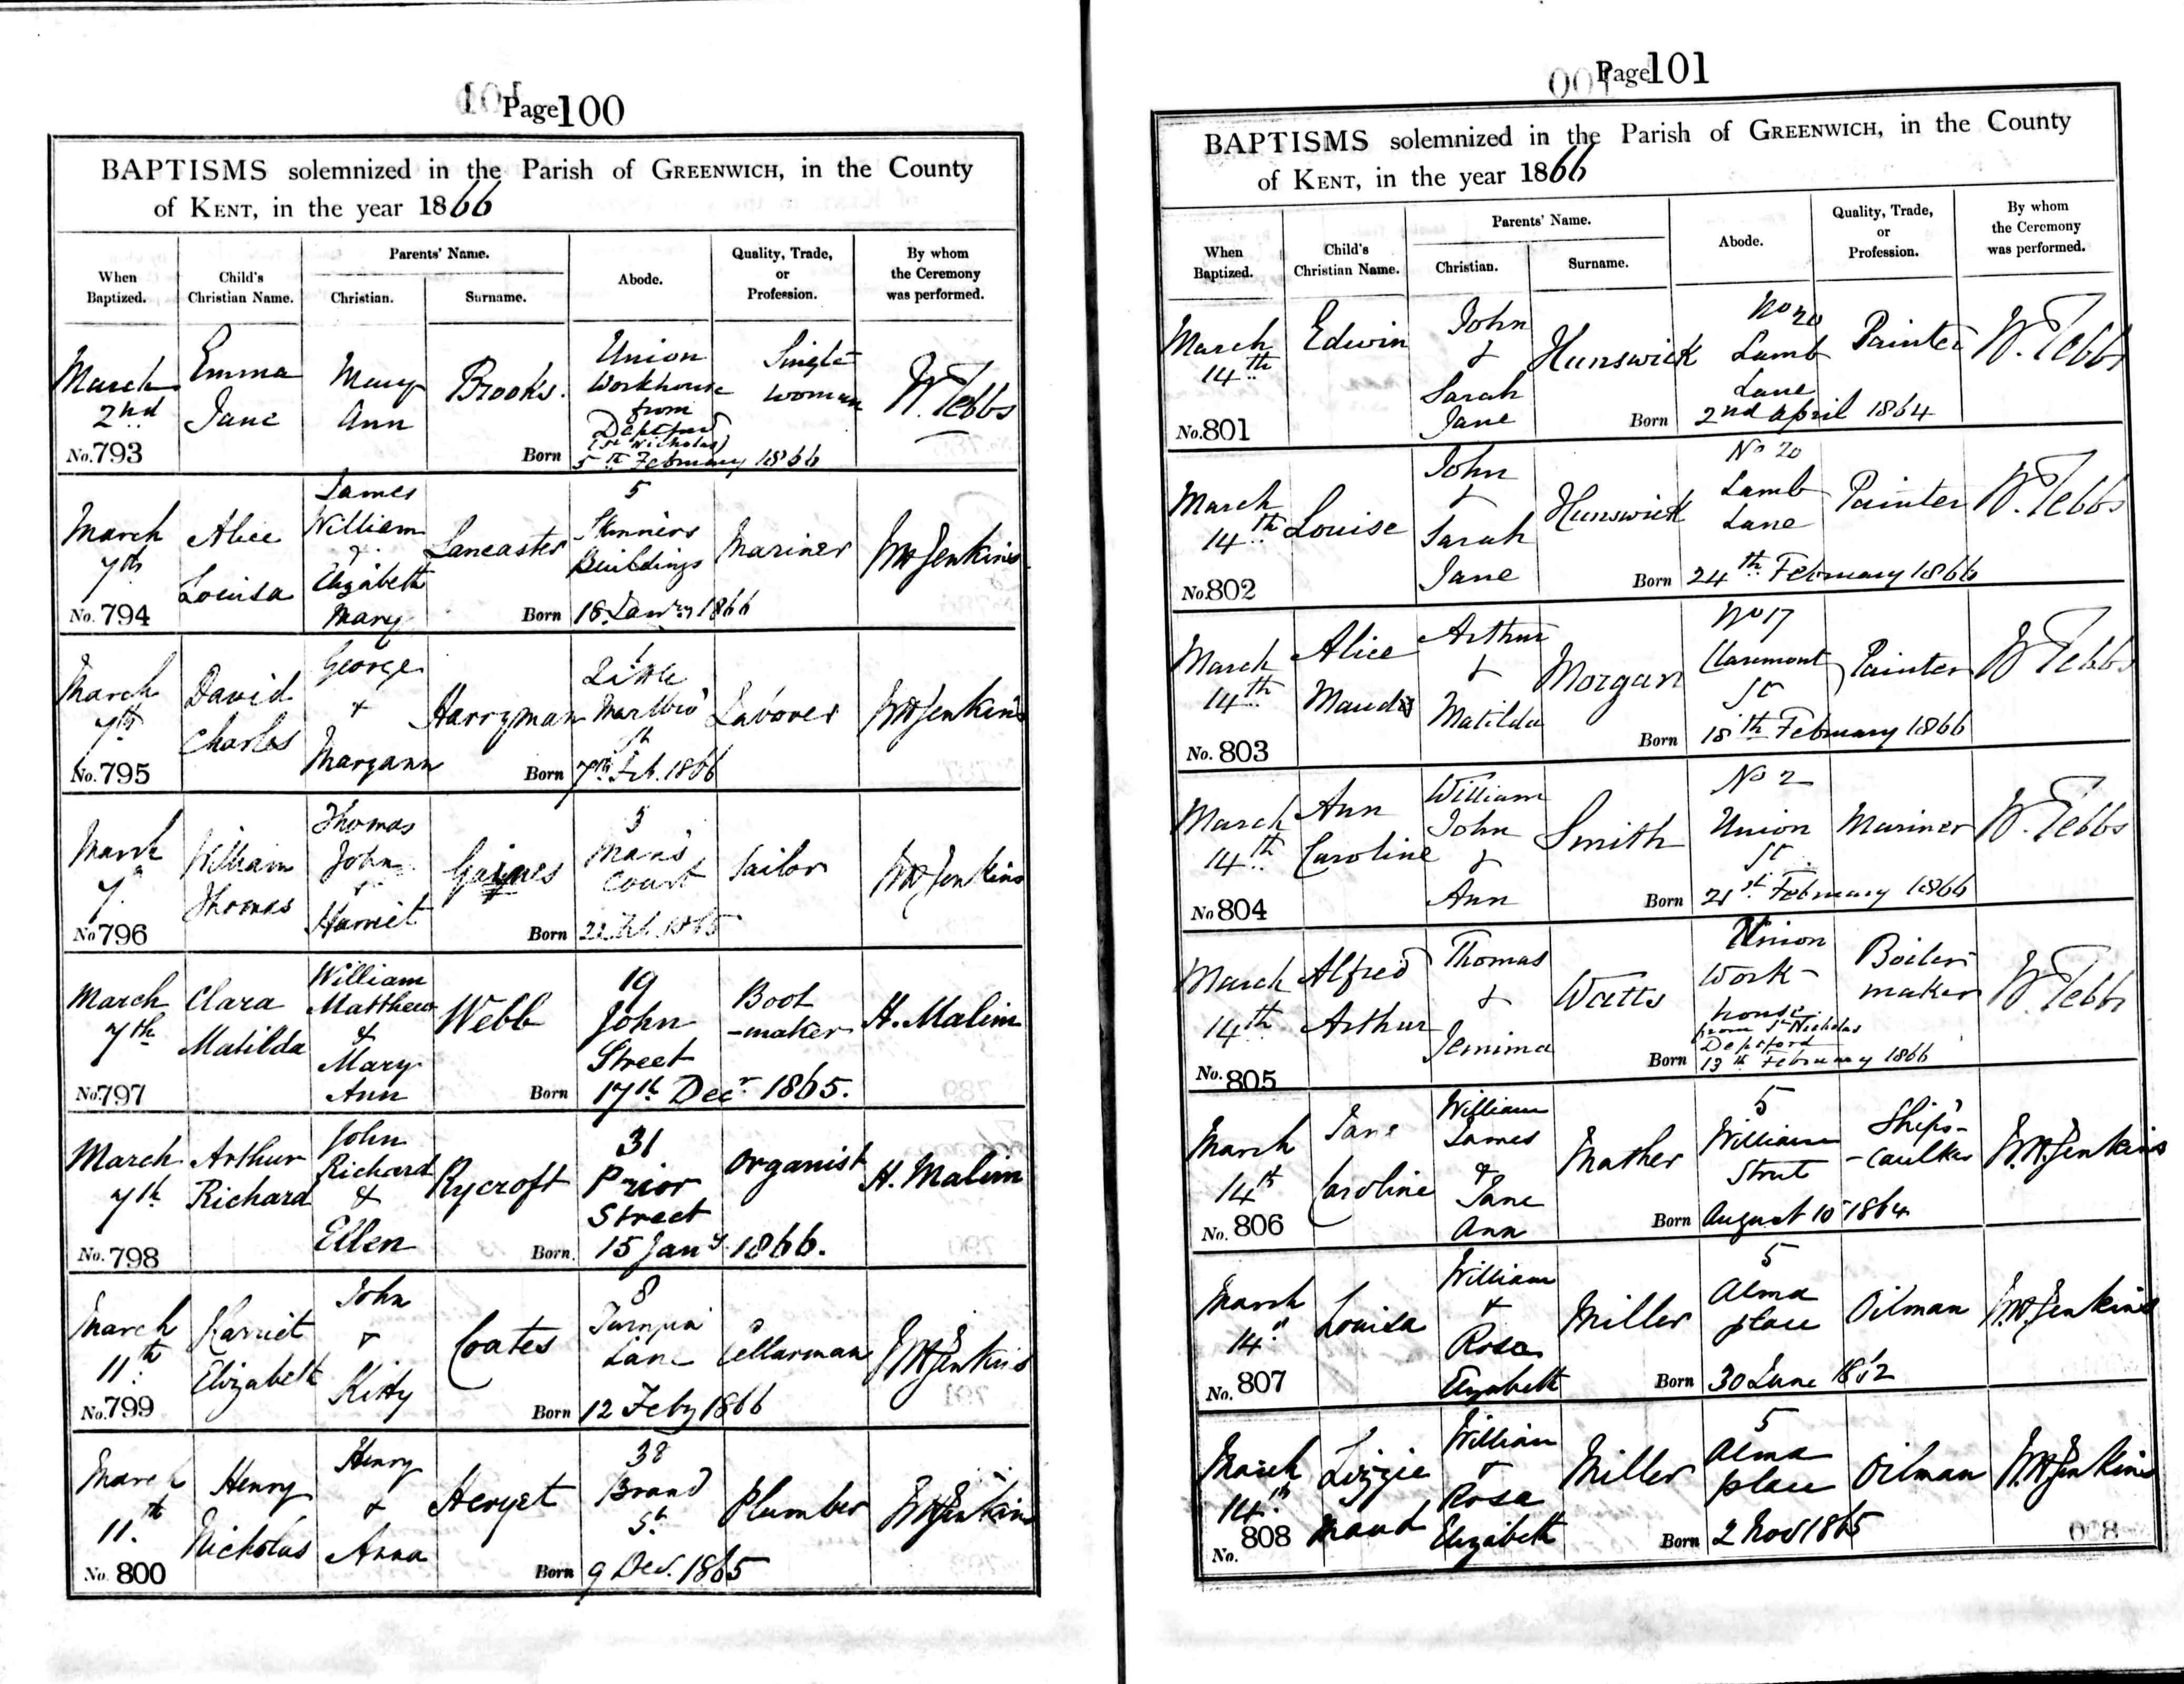 Page 100
BAPTISMS solemnized in the Parish of GREENWICH, in the County
of KENT, in the year 1866
When Baptized. Child's Christian Name. Parents' Name. Christian. Surname. Abode. Quality, Trade, or Profession. By whom the Ceremony was performed.
March 2nd No. 793 Emma Jane Mary Ann Brooks. Union Workhouse from Deptford (St Nicholas) Single woman W. Tebbs
Born 5th February 1866
March 7th No. 794 Alice Louisa James William & Elizabeth Mary Lancaster 5 Skinners Buildings Mariner Jenkins
Born 18 Janry 1866
March 7th No. 795 David Charles George & Margann Harryman 1 Little Marlbro' St Laborer Jenkins
Born 7th Feb. 1866
March 7th No 796 William Thomas Thomas John & Harriet Gaines court Sailor Jenkins
Born
March 7th No. 797 Clara Matilda William Matthew & Mary Ann Webb 19 John Street Boot-maker H. Malim
Born 17th Decr 1865.
March 7th No. 798 Arthur Richard John Richard & Ellen Rycroft 31 Prior Street Organist H. Malim
Born 15 Jany 1866.
March 11th No. 799 Harriet Elizabeth John & Kitty Coates 8 Turnpin Lane Cellarman Jenkins
Born 12 Feby 1866
March 11th No. 800 Henry Nicholas Henry & Anna 38 Brand St. Plumber Jenkins
Born 9 Dec. 1865
Page 101
BAPTISMS solemnized in the Parish of GREENWICH, in the County
of KENT, in the year 1866
When Baptized. Child's Christian Name. Parents' Name. Christian. Surname. Abode. Quality, Trade, or Profession. By whom the Ceremony was performed.
March 14th No. 801 Edwin John & Sarah Jane Hunswick No 20 Lamb Lane Painter W. Tebbs
Born 2nd April 1864
March 14th No. 802 Louise John & Sarah Jane Hunswick No 20 Lamb Lane Painter W. Tebbs
Born 24th February 1866
March 14th No. 803 Alice Arthur & Matilda Morgan No 17 Claremont St Painter W Tebbs
Born 18th February 1866
March 14th No 804 Ann Caroline William John & Ann Smith No 2 Union St Mariner W. Tebbs
Born 21st February 1866
March 14th No. 805 Alfred Arthur Thomas & Jemima Watts Union Work-house from St Nicholas Deptford Boiler maker W Tebbs
Born 13th February 1866
March 14th No. 806 Jane Caroline William James & Jane Ann Mather 5 William Street Ship's-caulker Jenkins
Born August 10 1864
March 14th No. 807 Louisa William & Rosa Elizabeth Miller 5 Alma place Oilman Jenkins
Born 30 June
March 14th No. 808 Lizzie Maud William & Rosa Elizabeth Miller 5 Alma place Oilman Jenkins
Born 2 Nov 1865